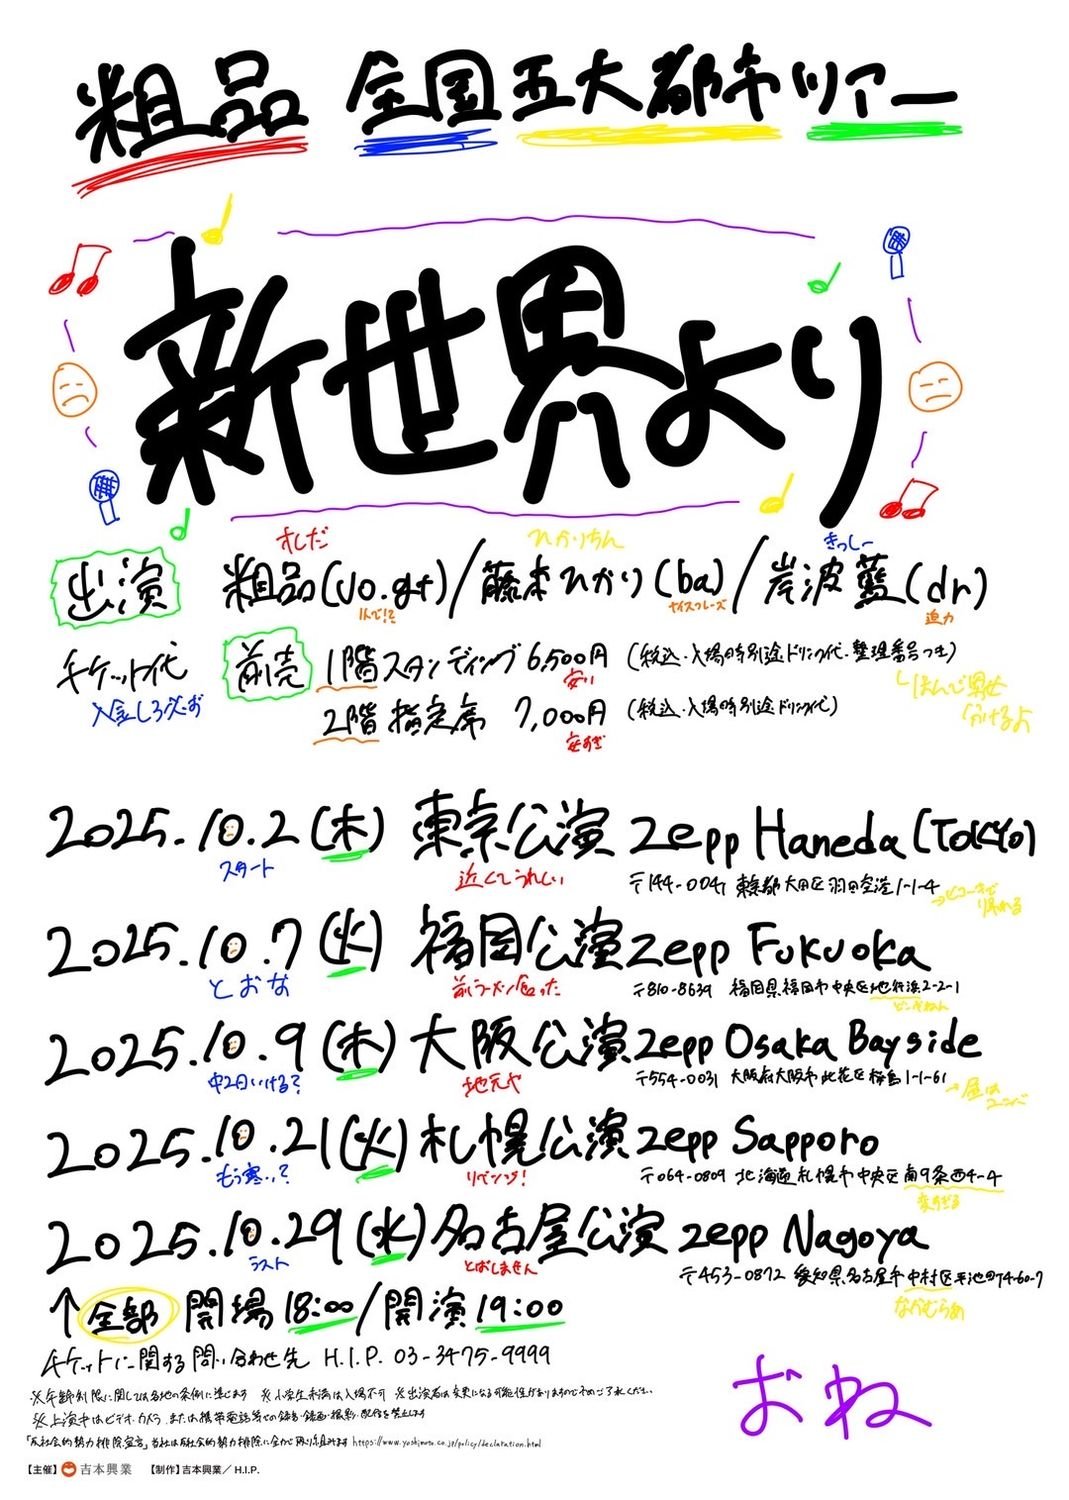 粗品 全国五大都市ツアー
新世界より
すしだ ひかりちん きっしー
出演 粗品(vo.gt)/藤本ひかり(ba)/岸波藍(dr)
1人で!? ナイスフレーズ 迫力
チケット代 前売 1階スタンディング 6,500円 (税込・入場時別途ドリンク代・整理番号つき)
入金しろ必ず 安い ほんで男女
2階 指定席 7,000円 (税込・入場時別途ドリンク代)
分けるよ
安すぎ
2025.10.2(木) 東京公演 Zepp Haneda (TOKYO)
スタート 近くてうれしい 〒144-0041 東京都大田区羽田空港1-1-4
帰れる
2025.10.7(火) 福岡公演 Zepp Fukuoka
とおな 前ラーメン食った 〒810-8639 福岡県福岡市中央区地行浜2-2-1
どこやねん
2025.10.9(木) 大阪公演 Zepp Osaka Bayside
中2日いける? 地元や 〒554-0031 大阪府大阪市此花区桜島1-1-61
→昼は
ユニバ
2025.10.21(火) 札幌公演 Zepp Sapporo
もう寒い? リベンジ! 〒064-0809 北海道札幌市中央区南9条西4-4
変すぎる
2025.10.29(水) 名古屋公演 Zepp Nagoya
ラスト とばしません 〒453-0872 愛知県名古屋市中村区平池町4-60-7
なかむらあ
↑全部 開場 18:00/開演 19:00
チケットに関する問い合わせ先 H.I.P. 03-3475-9999
おね
※年齢制限に関しては各地の条例に準じます ※小学生未満は入場不可 ※出演者は変更になる可能性がありますので予めご了承ください。
※上演中はビデオ・カメラ、または携帯電話等での録音・録画・撮影・配信を禁止します
「反社会的勢力排除宣言」当社は反社会的勢力排除に全力で取り組みます https://www.yoshimoto.co.jp/policy/declaration.html
【主催】吉本興業 【制作】吉本興業/H.I.P.